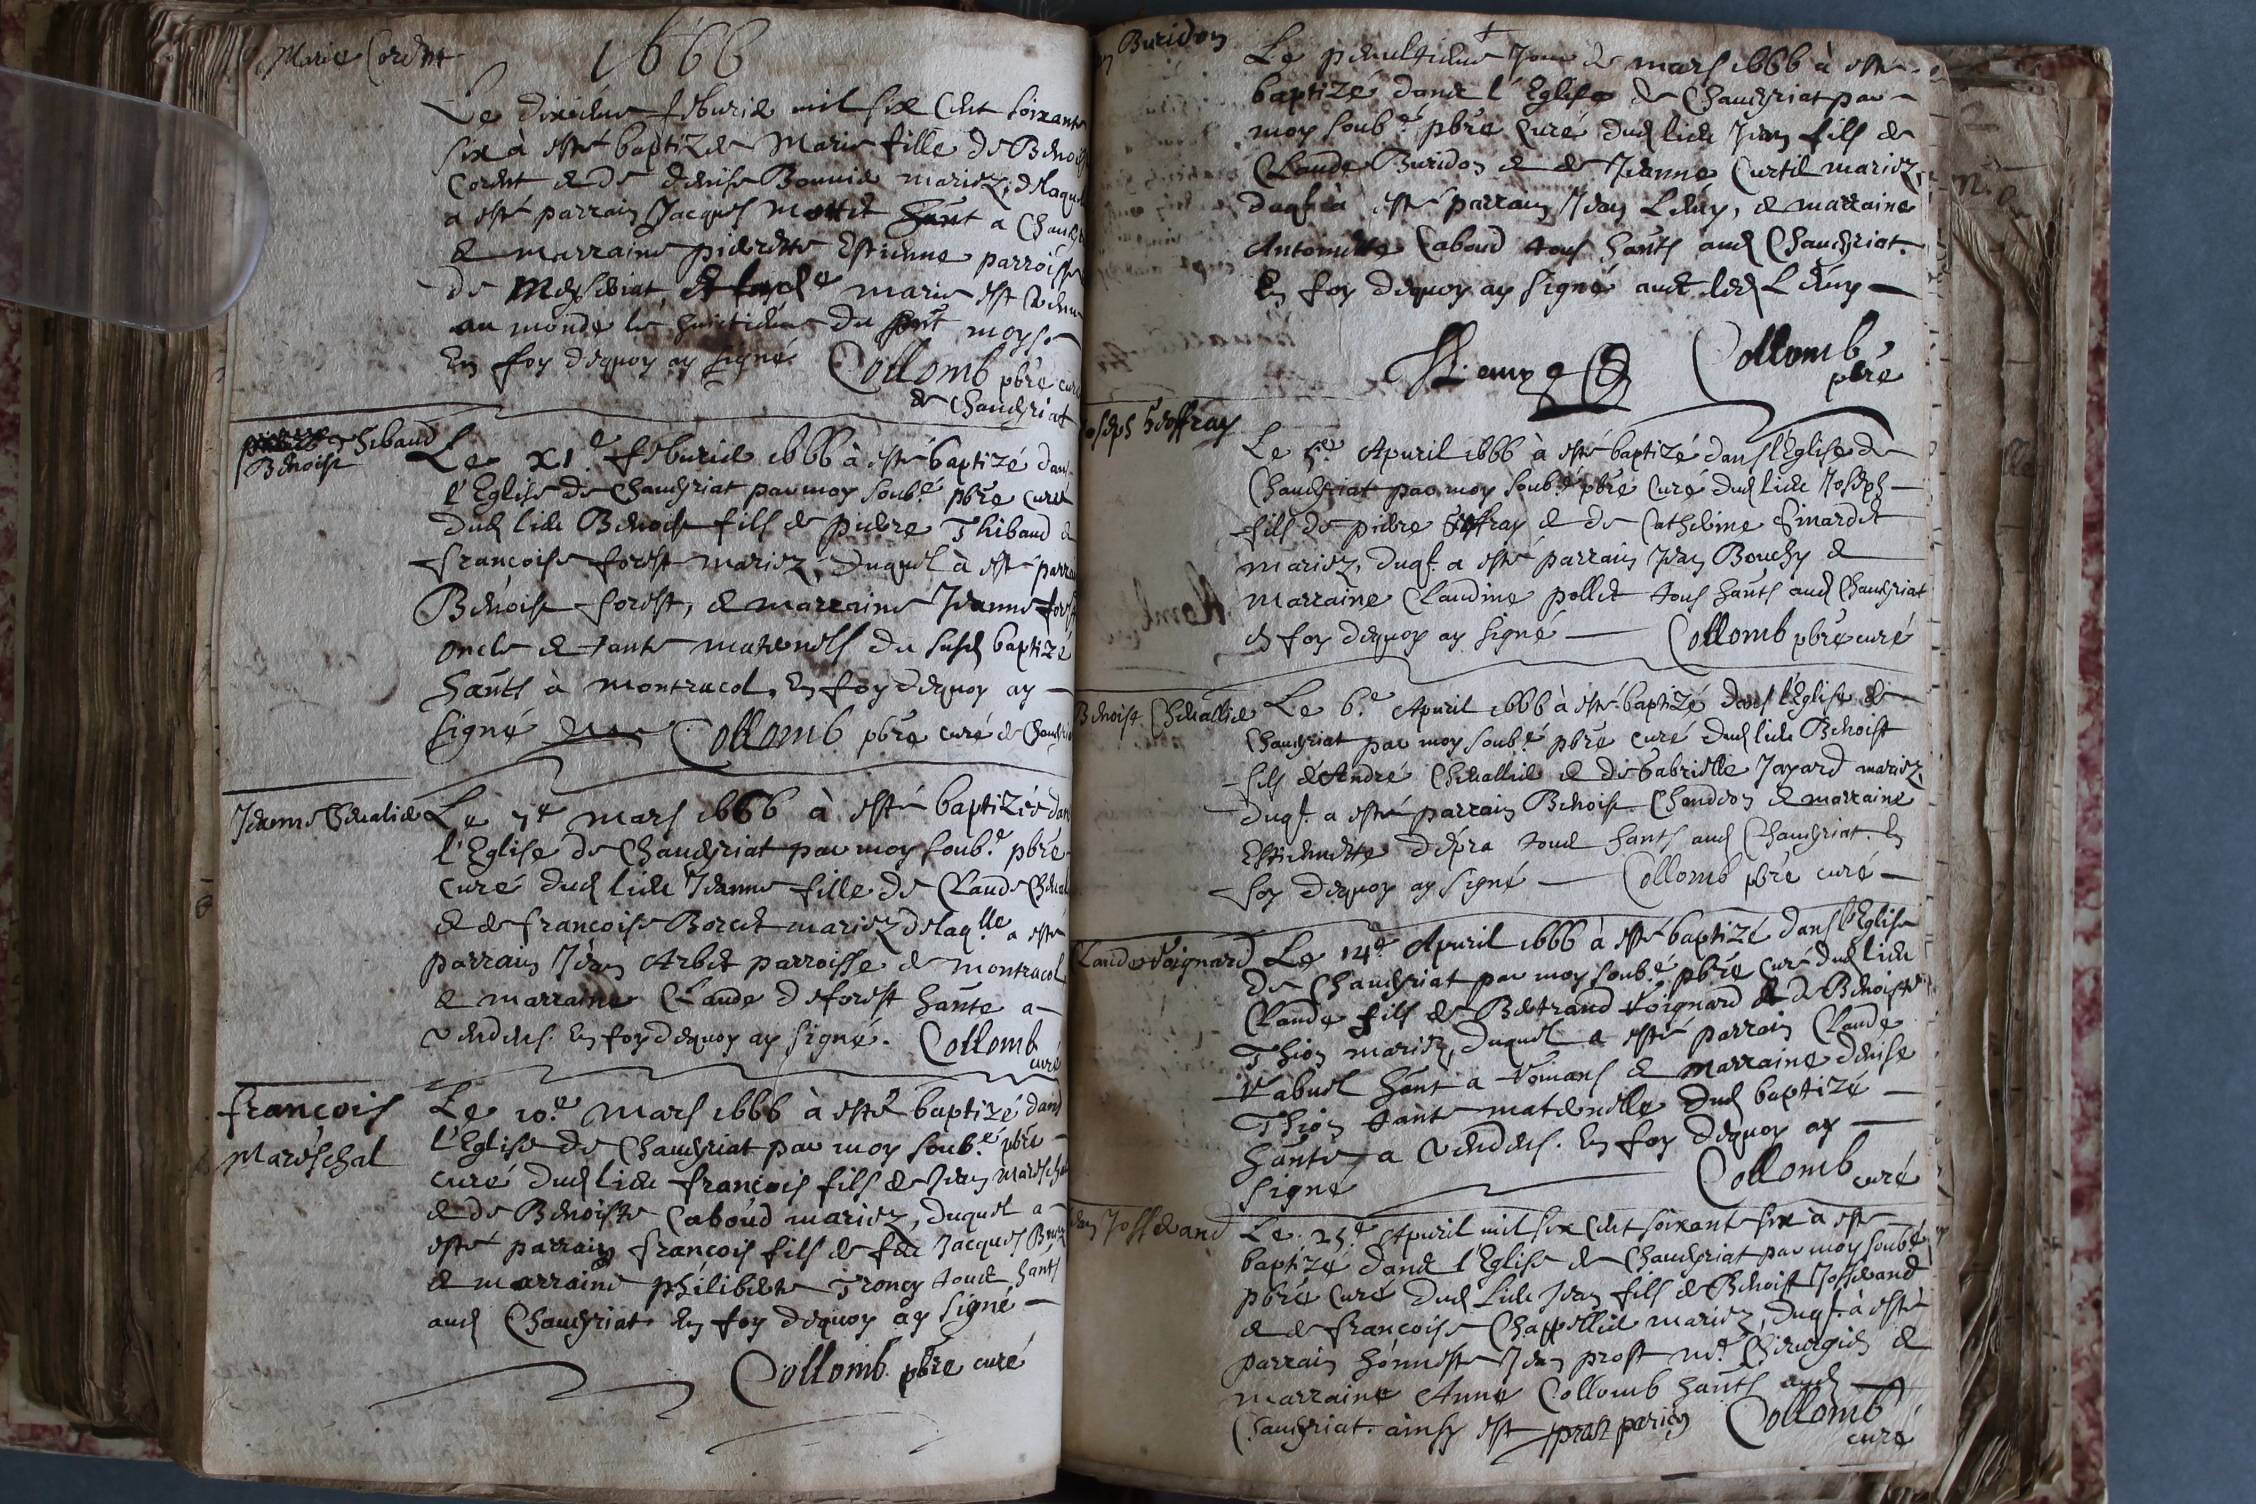 Marie Cordet
1666
Le dixieme feburier mil six cent soixante
six à esté baptizée Marie fille de Benoist
Cordet & de denise Bonnier mariez, delaquelle
a esté parrain Jacques Mottet hãnt a Chau
& marraine pierrette Estienne parroisse
de et lad.e marie est venue
au monde le huictieme du pnt moys
En foy dequoy ay signé Collomb pbre curé
de Chaveyriat
Thibaud
Benoist
Le XI.e feburier 1666 à esté baptizé dans
l'Eglise de Chaveyriat par moy soub.é pbre curé
dud lieu Benoist fils de pierre Thibaud &
françoise forest mariez, duquel à esté parrain
Benoist forest, & marraine Jeanne forest
oncle & tante maternels du susd baptizé
hãnts à montracol, En foy dequoy ay
signé Collomb pbre curé de Chaveyriat
Jeanne Chevalier
Le 7e mars 1666 à esté baptizée dans
l'Eglise de Chaveyriat par moy soub.é pbre
curé dud lieu Jeanne fille de Claude Cheval
& de françoise Borcet mariez delaq.lle a esté
parrain Jean Arbet parroisse de montracol
& marraine Claude deforest hãnte a
vendens. En foy dequoy ay signé. Collomb
curé
françois
Mareschal
Le 10.e Mars 1666 à esté baptizé dans
l'Eglise de Chaveyriat par moy soub.é pbre
curé dud lieu françois fils de Jean maresch
& de Benoiste Caboud mariez, duquel a
esté parrain françois fils de feu Jacques
& marraine philiberte Troncy tous hãnts
aud Chaveyriat En foy dequoy ay signé
Collomb. pbre curé
Buridon
Le penultieme Jour de mars 1666 à esté
baptizé dans l'Eglise de Chaveyriat par
moy soub.é pbre Curé dud lieu Jean fils de
Claude Buridon & de Jeanne Curtil mariez,
duql à esté parrain Jean Leuny, & marraine
Antoinette Caboud tous hãnts aud Chaveyriat.
En foy dequoy ay signé avec led Leuny
Collomb
pbre
Joseph Geoffray
Le 5.e Apuril 1666 à esté baptizé dans l'Eglise de
Chaveyriat par moy soub.é pbre Curé dud lieu Joseph
fils de pierre Geoffray & de Catherine Pinardet
mariez, duql. a esté parrain Jean Bouchy &
marraine Claudine pollet tous hãnts aud Chaveyriat
En foy dequoy ay signé Collomb pbre curé
Benoist Chevallier
Le 6.e Apuril 1666 à esté baptizé dans l'Eglise de
Chaveyriat par moy soub.é pbre curé dud lieu Benoist
fils d'André Chevallier & de Gabrielle Jayard mariez,
duql a esté parrain Benoist Chandeon & marraine
Estiennette dépra tous hãnts aud Chaveyriat. En
foy dequoy ay signé Collomb pbre curé
Claude Voignard
Le 14.e Apuril 1666 à esté baptizé dans l'Eglise
de Chaveyriat par moy soub.é pbre curé dud lieu
Claude fils de Bertrand Voignard & de Benoiste
Thion mariez, duquel a esté parrain Claude
Vabuel hãnt a Vonans & marraine denise
Thion tante maternelle dud baptizé
hãnte a vendens. En foy dequoy ay
signé Collomb curé
Jean Josserand
Le 25.e Apuril mil six cent soixante six à esté
baptizé dans l'Eglise de Chaveyriat par moy soubé
pbre Curé dud lieu Jean fils de Benoist Josserand
& de françoise Chappellier mariez, duql à esté
parrain honneste Jean prost m.e Chirurgien &
marraine Anne Collomb hãnts aud
Chaveyriat. ainsy est prost parien Collomb
curé